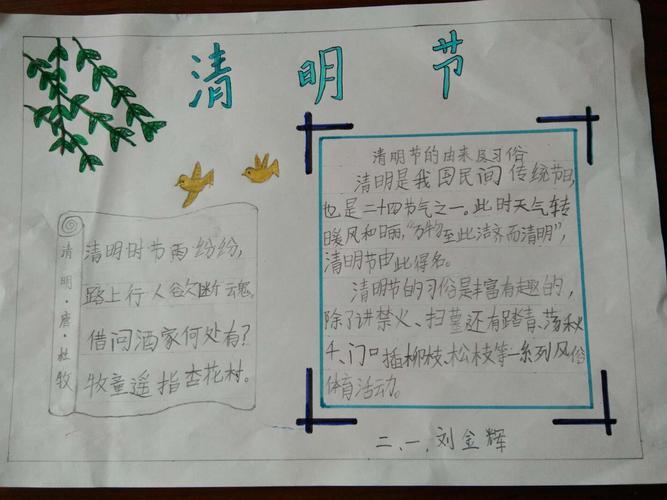 清明节
清明·唐·杜牧
清明时节雨纷纷,
路上行人欲断魂。
借问酒家何处有?
牧童遥指杏花村。
清明节的由来及习俗
清明是我国民间传统节日,
也是二十四节气之一。此时天气转
暖风和日丽,“万物至此洁齐而清明”,
清明节由此得名。
清明节的习俗是丰富有趣的,
除了讲禁火、扫墓还有踏青、荡秋
千、门口插柳枝、松枝等一系列风俗
体育活动。
二、一、刘金辉